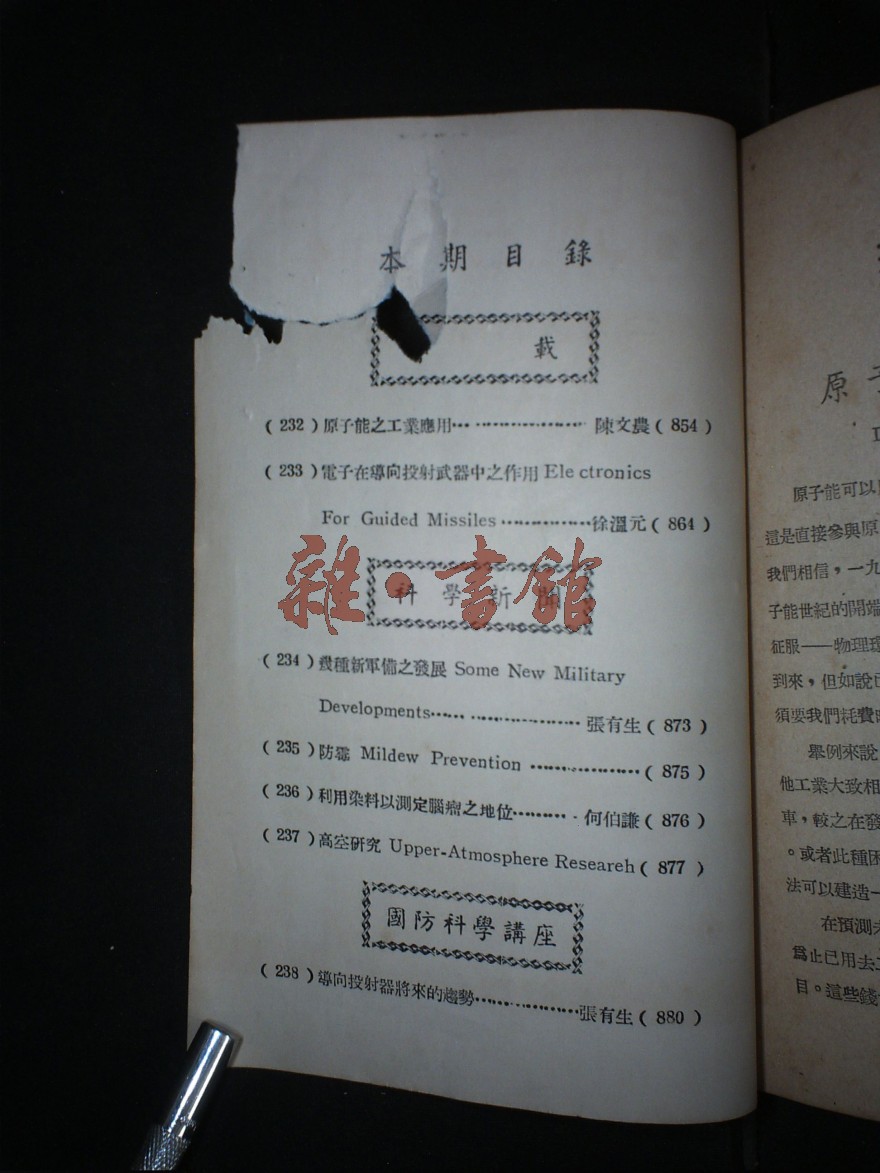 本期目錄
載
(232)原子能之工業應用………………陳文農(854)
(233)電子在導向投射武器中之作用 Ele ctronics
For Guided Missiles……………徐溫元(864)
科學新聞
雜·書館
(234)幾種新軍備之發展 Some New Military
Developments………………張有生(873)
(235)防霉 Mildew Prevention ………………(875)
(236)利用染料以測定腦瘤之地位………·何伯謙(876)
(237)高空研究 Upper-Atmosphere Researeh(877)
國防科學講座
(238)導向投射器將來的趨勢………………張有生(880)
原子
原子能可以
這是直接參與原
我們相信,一九
子能世紀的開端
征服——物理環
到來,但如說已
須要我們耗費
舉例來說
他工業大致相
車,較之在發
。或者此種困
法可以建造一
在預測未
爲止已用去
目。這些錢